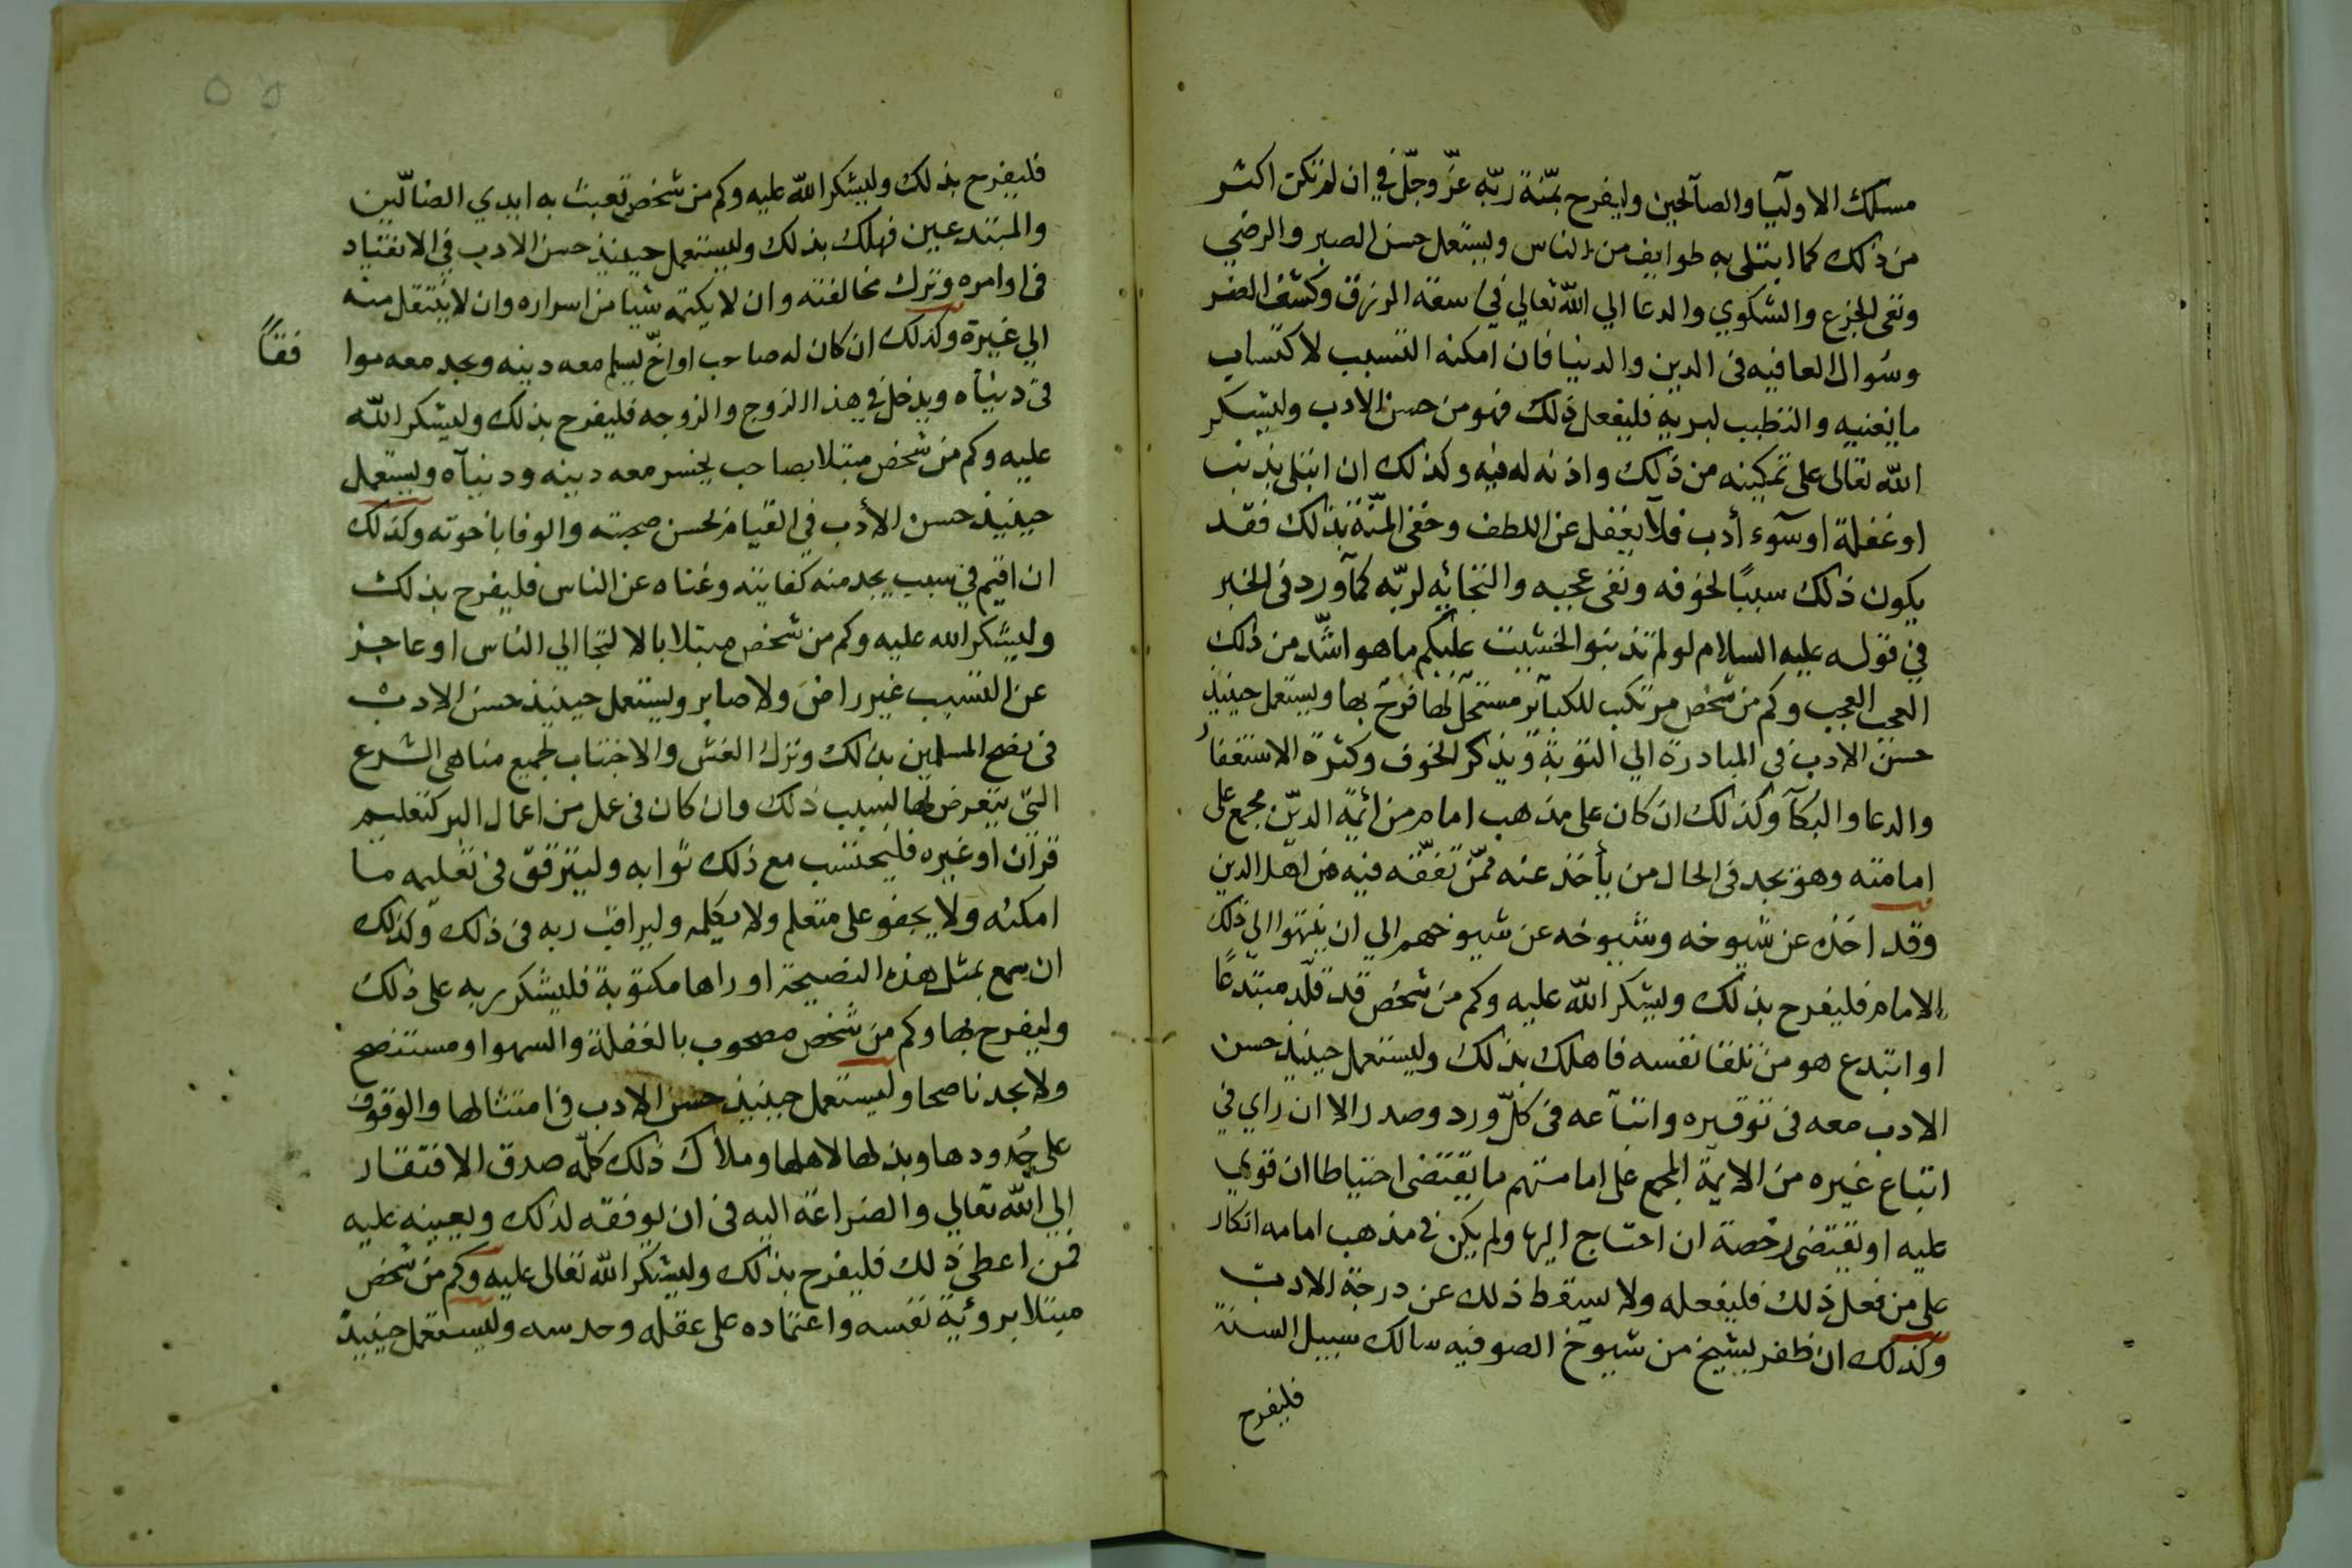 مسلك الاوليآ والصآلحين وليفرح بمنّة ربّه عزّ وجلّ في ان لم تكن اكثر
من ذلك كما ابتلى به طوايف من الناس وليستعمل حسن الصبر والرضي
ونفى الجزع والشكوي والدعا الي الله تعالي في سعة الرزق وكشف الضر
وسُوال العافيه فى الدين والدنيا فان امكنه التسبب لاكتساب
ما يغنيه والتطبب لبريه فليفعل ذلك فهو من حسن الادب وليشكر
الله تعالى على تمكينه من ذلك واذنه له فيه وكذلك ان ابتلى بذنب
او غفلة او سوٓء أدب فلا يغفل عن اللطف وخفى المنّة بذلك فقد
يكون ذلك سببًا لخوفه ونفى عجبه والتجائه لربّه كمآ ورد فى الخبر
في قوله عليه السلام لو لم تذنبوا لخشيت عليكم ما هو اشّد من ذلك
العجب العجب وكم من شخص مرتكب للكبآئر مستحلّ لها فرحٌ بها وليستعمل حينيذ
حسن الادب فى المبادرة الي التوبة وتذكر الخوف وكثرة الاستغفار
والدعا والبُكآ وكذلك ان كان على مذهب امام من ائمة الديّن مجمع على
امامته وهو يجد فى الحال من يأخذ عنه ممّن تفقّه فيه من اهل الدين
وقد اخذه عن شيوخه وشيوخه عن شيوخهم الي ان ينتهوا الى ذلك
الامام فليفرح بذلك وليشكر الله عليه وكم من شخص قد قلّد مبتدعًا
او ابتدع هو من تلقا نفسه فاهلك بذلك وليستعمل حينيذ حسن
الادب معه فى توقيره واتبآعه فى كلّ ورد وصدر الا ان راي في
اتباع غيره من الايمة المجمع على امامتهم ما يقتضى احتياطا ان قوي
عليه او يقتضى رخصة ان احتاج اليها ولم يكن في مذهب امامه انكار
على من فعل ذلك فليفعله ولا يسقط ذلك عن درجة الادب
وكذلك ان ظفر بشيخ من شيوخ الصوفيه سالك سبيل السنة
فليفرح
فليفرح بذلك وليشكر الله عليه وكم من شخص تعبث به ايدي الضالّين
والمبتدعين فهلك بذلك وليستعمل حينيذ حسن الادب في الانقياد
فى اوامره وترك مخالفته وان لا يكتمه شيا من اسراره وان لا ينتقل منه
الي غيرة وكذلك ان كان له صاحب او اخّ ليسلم معه دينه ويجد معه موا
فقًا
فى دنيآه ويدخل في هذا الزوج والزوجه فليفرح بذلك وليشكر الله
عليه وكم من شخص مبتلا بصاحب يخسر معه دينه ودنيآه وليستعمل
حينيذ حسن الأدب في القيام لحسن صحبته والوفا باخوته وكذلك
ان اقيم في سبب يجد منه كفايته وغناه عن الناس فليفرح بذلك
وليشكر الله عليه وكم من شخص مبتلا بالالتجا الي الناس او عاجز
عن التسبب غير راض ولا صابر وليستعمل حينيذ حسن الادب
فى نصح المسلمين بذلك وترك الغش والاجتناب لجميع مناهى الشرع
التى يتعرض لها لسبب ذلك وان كان فى عمل من اعمال البر كتعليم
قرآن او غيره فليحتسب مع ذلك ثوابه وليترفق فى تعليمه ما
امكنه ولا يجفو على متعلم ولا يكلمه وليراقب ربه فى ذلك وكذلك
ان سمع بمثل هذه النصيحة او راها مكتوبة فليشكر ربه على ذلك
وليفرح بها وكم من شخص مصحوب بالغفلة والسهو او مستنصح
ولا يجد ناصحا وليستعمل حينيذ حسن الادب فى امتثالها والوقوف
على حُدودها وبذلها لاهلها وملاك ذلك كلّه صدق الافتقار
الي الله تعالي والضراعة اليه فى ان يوفقه لذلك ويعينه عليه
فمن اعطى ذلك فليفرح بذلك وليشكر الله تعالى عليه وكم من شخص
مبتلا بروئية نفسه واعتماده على عقله وحدسه وليستعمل حينيذ